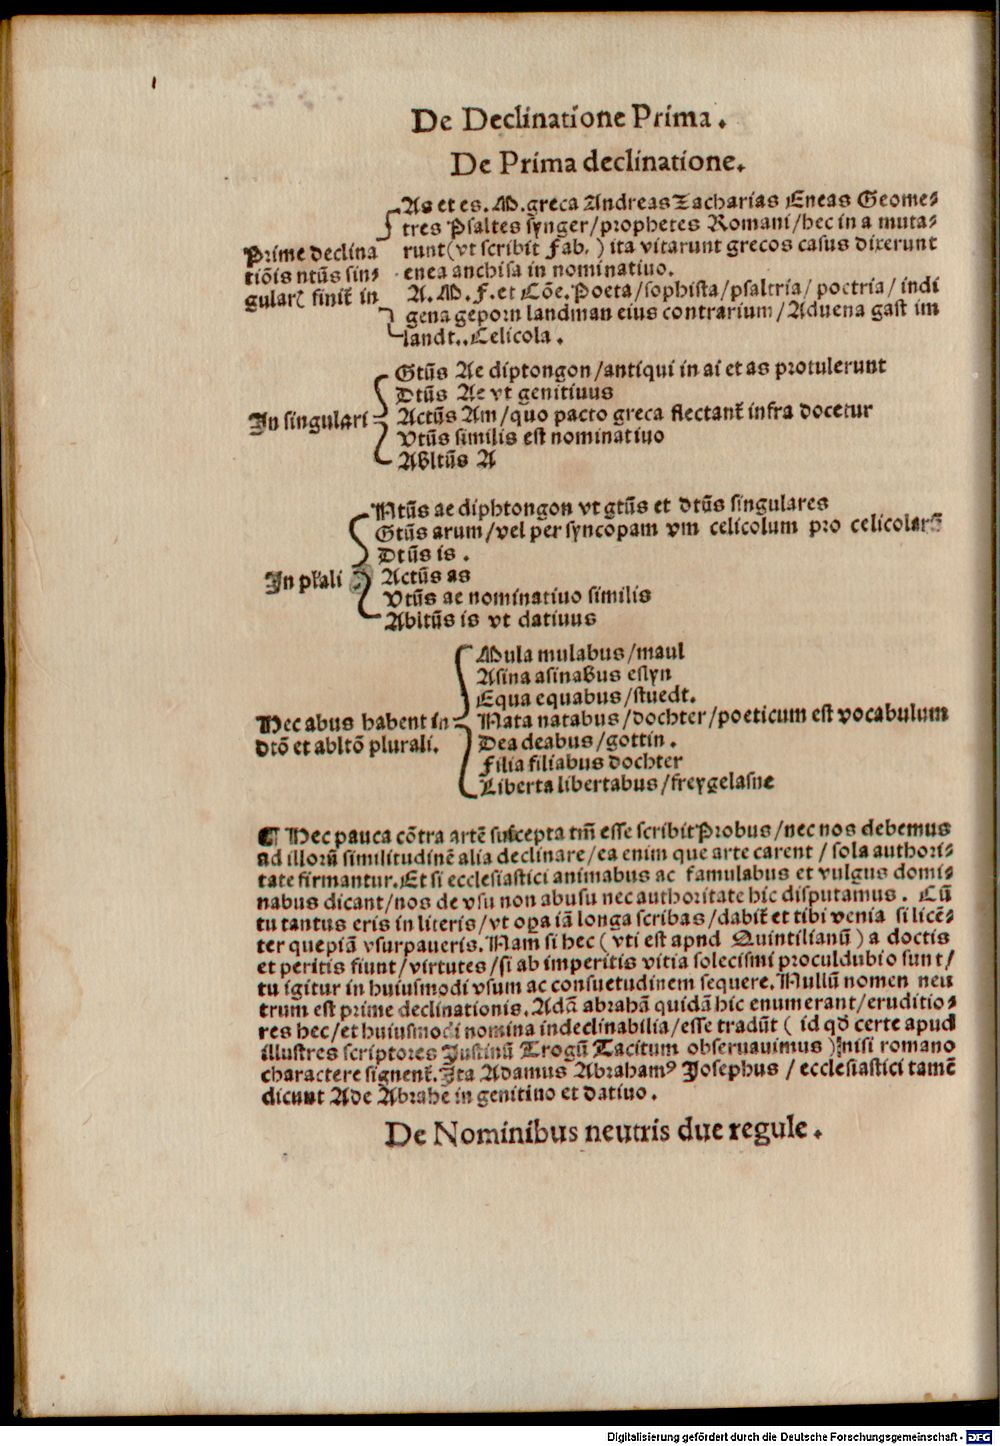 De Declinatione Prima.
De Prima declinatione.
As et es. M. greca Andreas Zacharias Eneas Geome-
tres Psaltes synger/prophetes Romani/hec in a muta-
Prime declina
runt(vt scribit Fab.) ita vitarunt grecos casus dixerunt
tiõis ntũs sin-
enea anchisa in nominatiuo.
gularꝭ finit̃ in
A. M. F. et Cõe. Poeta/sophista/psaltria/poetria/indi
gena geporn landman eius contrarium/Aduena gast im
landt.. Celicola.
Gtũs Ae diptongon/antiqui in ai et as protulerunt
Dtũs Ae vt genitiuus
In singulari
Actũs Am/quo pacto greca flectant̃ infra docetur
Vtũs similis est nominatiuo
Abltũs A
Ntũs ae diphtongon vt gtũs et dtũs singulares
Gtũs arum/vel per syncopam vm celicolum pro celicolarũ
Dtũs is.
In pl̃ali
Actũs as
Vtũs ae nominatiuo similis
Abltũs is vt datiuus
Mula mulabus/maul
Asina asinabus eslyn
Equa equabus/stuedt.
Hec abus habent in
Nata natabus/dochter/poeticum est vocabulum
dtõ et abltõ plurali.
Dea deabus/gottin.
Filia filiabus dochter
Liberta libertabus/freygelasne
¶ Hec pauca cõtra artẽ suscepta tm̃ esse scribit Probus/nec nos debemus
ad illorũ similitudinẽ alia declinare/ea enim que arte carent/sola authori-
tate firmantur. Et si ecclesiastici animabus ac famulabus et vulgus domi-
nabus dicant/nos de vsu non abusu nec authoritate hic disputamus. Cũ
tu tantus eris in literis/vt opa iã longa scribas/dabit̃ et tibi venia si licẽ-
ter quepiã vsurpaueris. Nam si hec (vti est apnd Quintilianũ) a doctis
et peritis fiunt/virtutes/si ab imperitis vitia solecismi proculdubio sunt/
tu igitur in huiusmodi vsum ac consuetudinem sequere. Nullũ nomen neu
trum est prime declinationis. Adã abrahã quidã hic enumerant/eruditio-
res hec/et huiusmodi nomina indeclinabilia/esse tradũt (id qđ certe apud
illustres scriptores Justinũ Trogũ Tacitum obseruauimus) nisi romano
charactere signent̃. Ita Adamus Abrahamꝰ Josephus/ecclesiastici tamẽ
dicunt Ade Abrahe in genitiuo et datiuo.
De Nominibus neutris due regule.
Digitalisierung gefördert durch die Deutsche Forschungsgemeinschaft - DFG